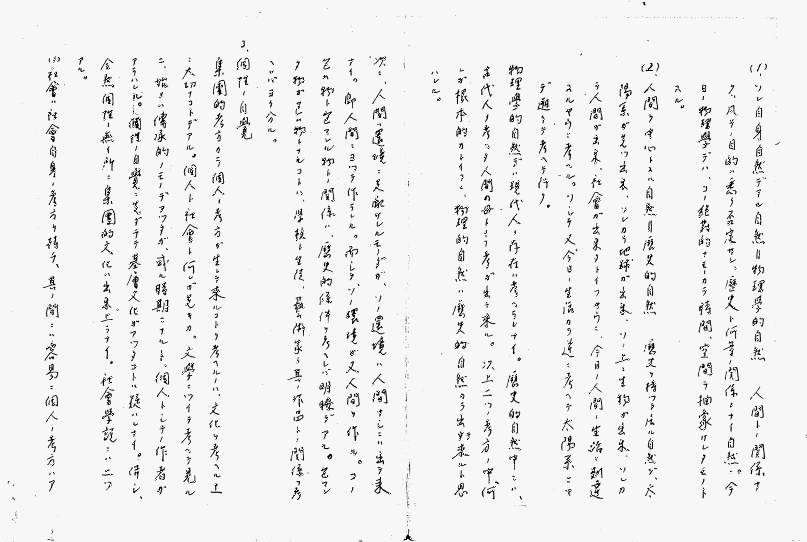 (1)、ソレ自身自然デアル自然目物理學的自然 人間トノ關係ナ
ク、凡テノ目的ハ悉ク否定サレ、歷史ト何等ノ關係モナイ自然。今
日ノ物理學デハ、コノ絕對的ナモノカラ時間、空間ヲ抽象サレタモノト
スル。
(2)、人間ヲ中心トスル自然目歷史的自然 歷史ヲ持ツトイフ自然デ、太
陽系ガ先ヅ出來、ソレカラ地球ガ出來、ソノ上ニ生物ガ出來、ソレカ
ラ人間ガ出來、社會ガ出來タトイフヤウニ、今日ノ人間ノ生活ニ到達
スルヤウニ考ヘル。ソシテ又今日ノ生活カラ逆ニ考ヘテ太陽系ニマ
デ遡ツテ考ヘテ行ク。
物理學的自然デハ現代人ノ存在ハ考ヘラレナイ。歷史的自然中ニハ、
古代人ノ考ヘタ人間ノ母トイフ考ガ出テ來ル。以上二ツノ考方ノ中何レ
ガ根本的カトイフニ、物理的自然ハ歷史的自然カラ出テ來ルト思
ハレル。
次ニ、人間ハ環境ニ支配サレルモノダガ、ソノ環境ハ人間ナシニハ出テ來
ナイ。卽人間ニヨツテ作ラレル。而シテ、ソノ環境ガ又人間ヲ作ル。コノ
包ム物ト包マレル物トノ關係ハ、歷史的條件ヲ考ヘレバ明瞭デアル。包マレ
タ物ガ包ム物トナルコトハ、學校ト生徒、藝術家ト其ノ作品トノ關係ヲ考
ヘレバヨク分ル。
3、個性ノ自覺
集團的考方カラ個人ノ考方ガ生レテ來ルコトヲ考ヘルノハ、文化ヲ考ヘル上
ニ大切ナコトデアル。個人ト社會ト何レガ先キカ。文學ニツイテ考ヘテ見ル
ニ、始メハ傳承的ノモノデアツタガ、或ル時期ニナルト、個人トシテノ作者ガ
アラハレル。個性ノ自覺ニ先ダツテ基層文化ガアツタコトハ疑ハレナイ。併シ、
全然個性ノ無イ所ニ集團的文化ハ出來上ラナイ。社會學說ニハ二ツ
アル。
(1)、社會ハ社會自身ノ考方ヲ持チ、其ノ間ニハ容易ニ個人ノ考方ハア